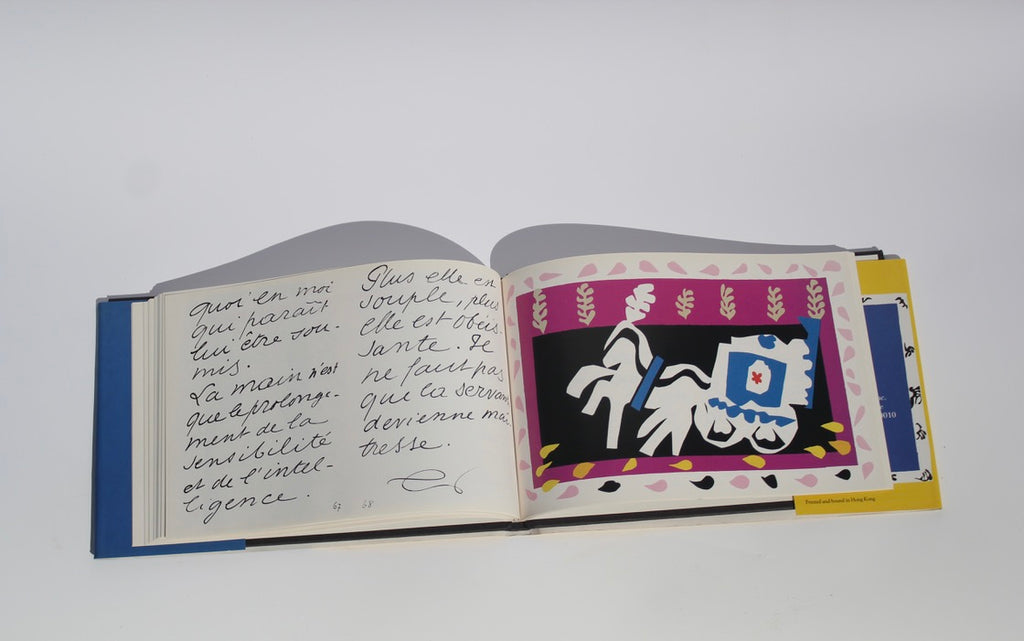 quoi en moi
qui paraît
lui être sou-
mis.
La main n'est
que le prolonge-
ment de la
sensibilité
et de l'intel-
ligence.
67
Plus elle est
souple, plus
elle est obéis-
sante. Il
ne faut pas
que la servan
devienne maî-
tresse.
68
0010
Printed and bound in Hong Kong